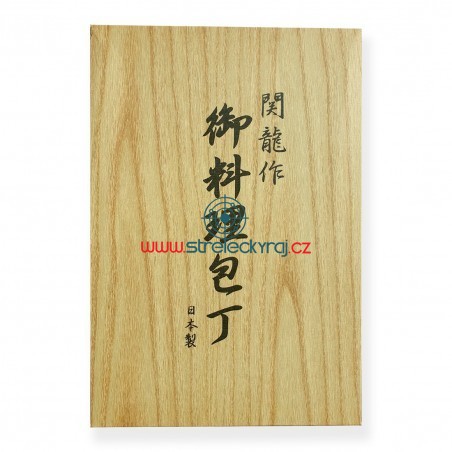 関龍作
御料理包丁
日本製
www.streleckyraj.cz